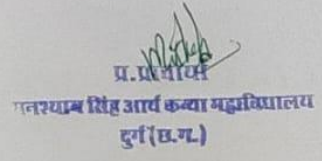 प्र. प्राचार्य
घनश्याम सिंह आर्य कन्या महाविद्यालय
दुर्ग (छ.ग.)